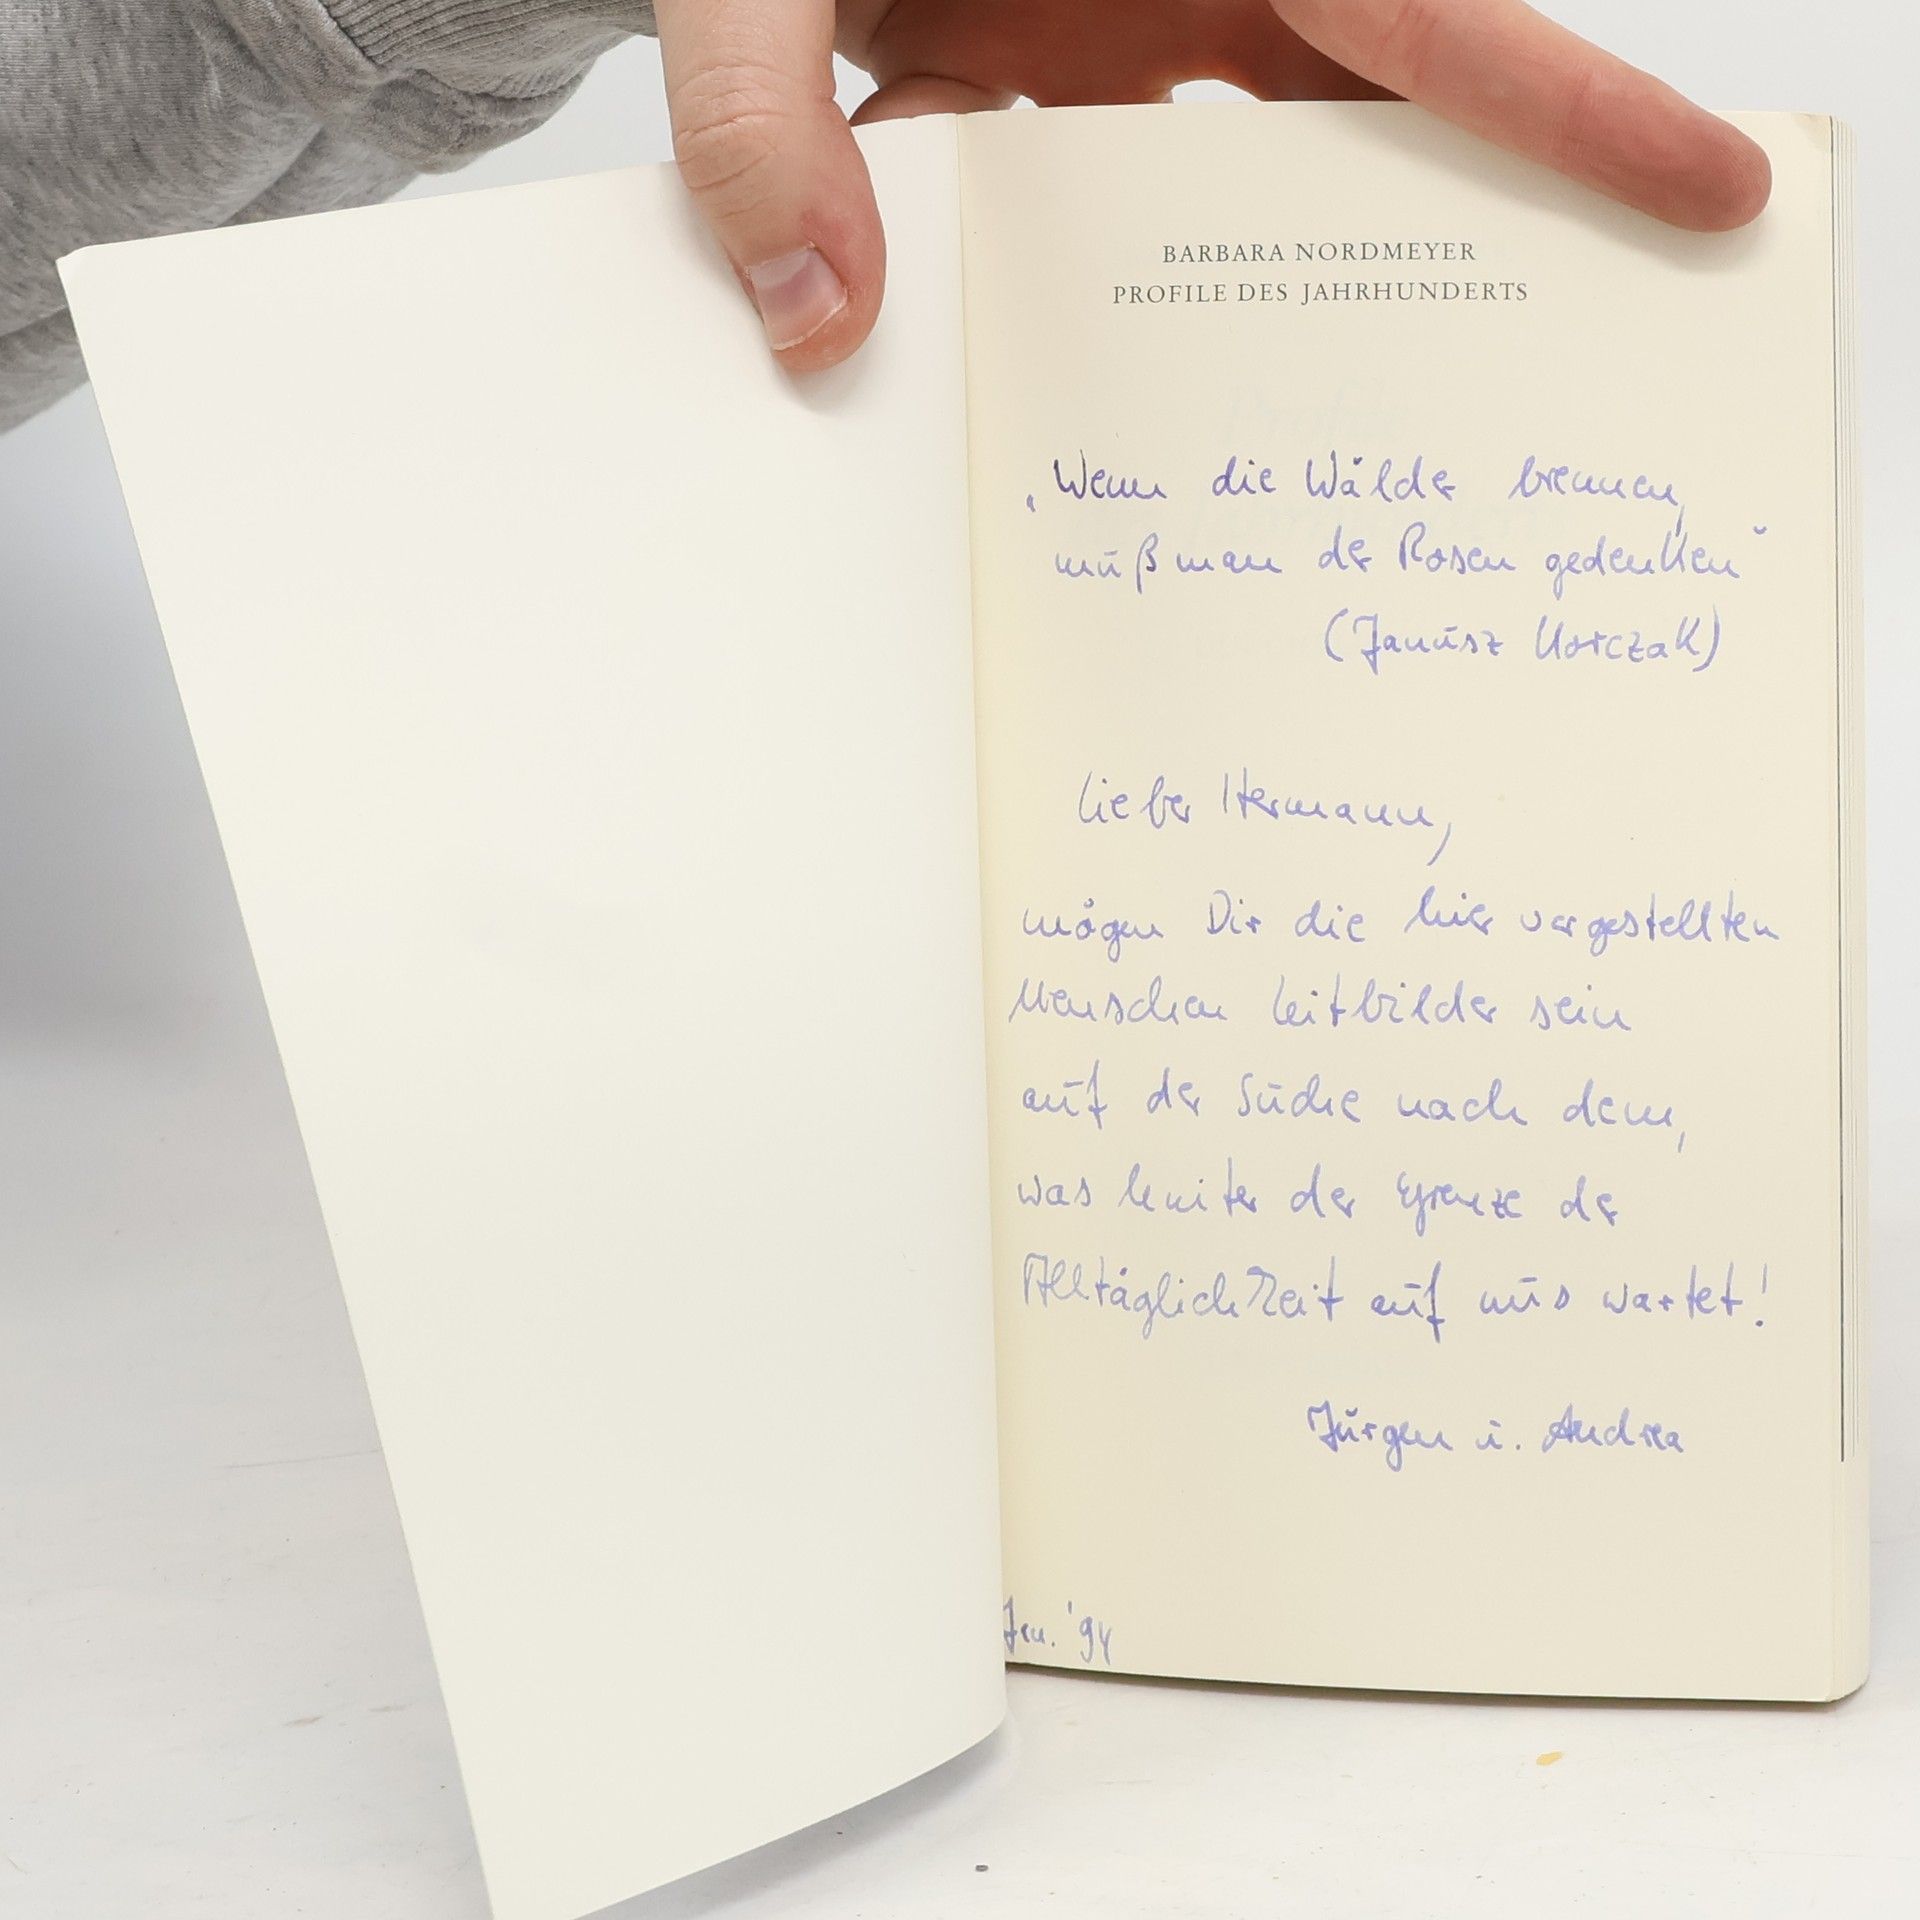 BARBARA NORDMEYER
PROFILE DES JAHRHUNDERTS
„Wenn die Wälder brennen,
muß man der Rosen gedenken“
(Janusz Korczak)
Lieber Hermann,
mögen Dir die hier vorgestellten
Menschen Leitbilder sein
auf der Suche nach dem,
was hinter der Grenze der
Alltäglichkeit auf uns wartet!
Jürgen u. Andrea
Jan. '94